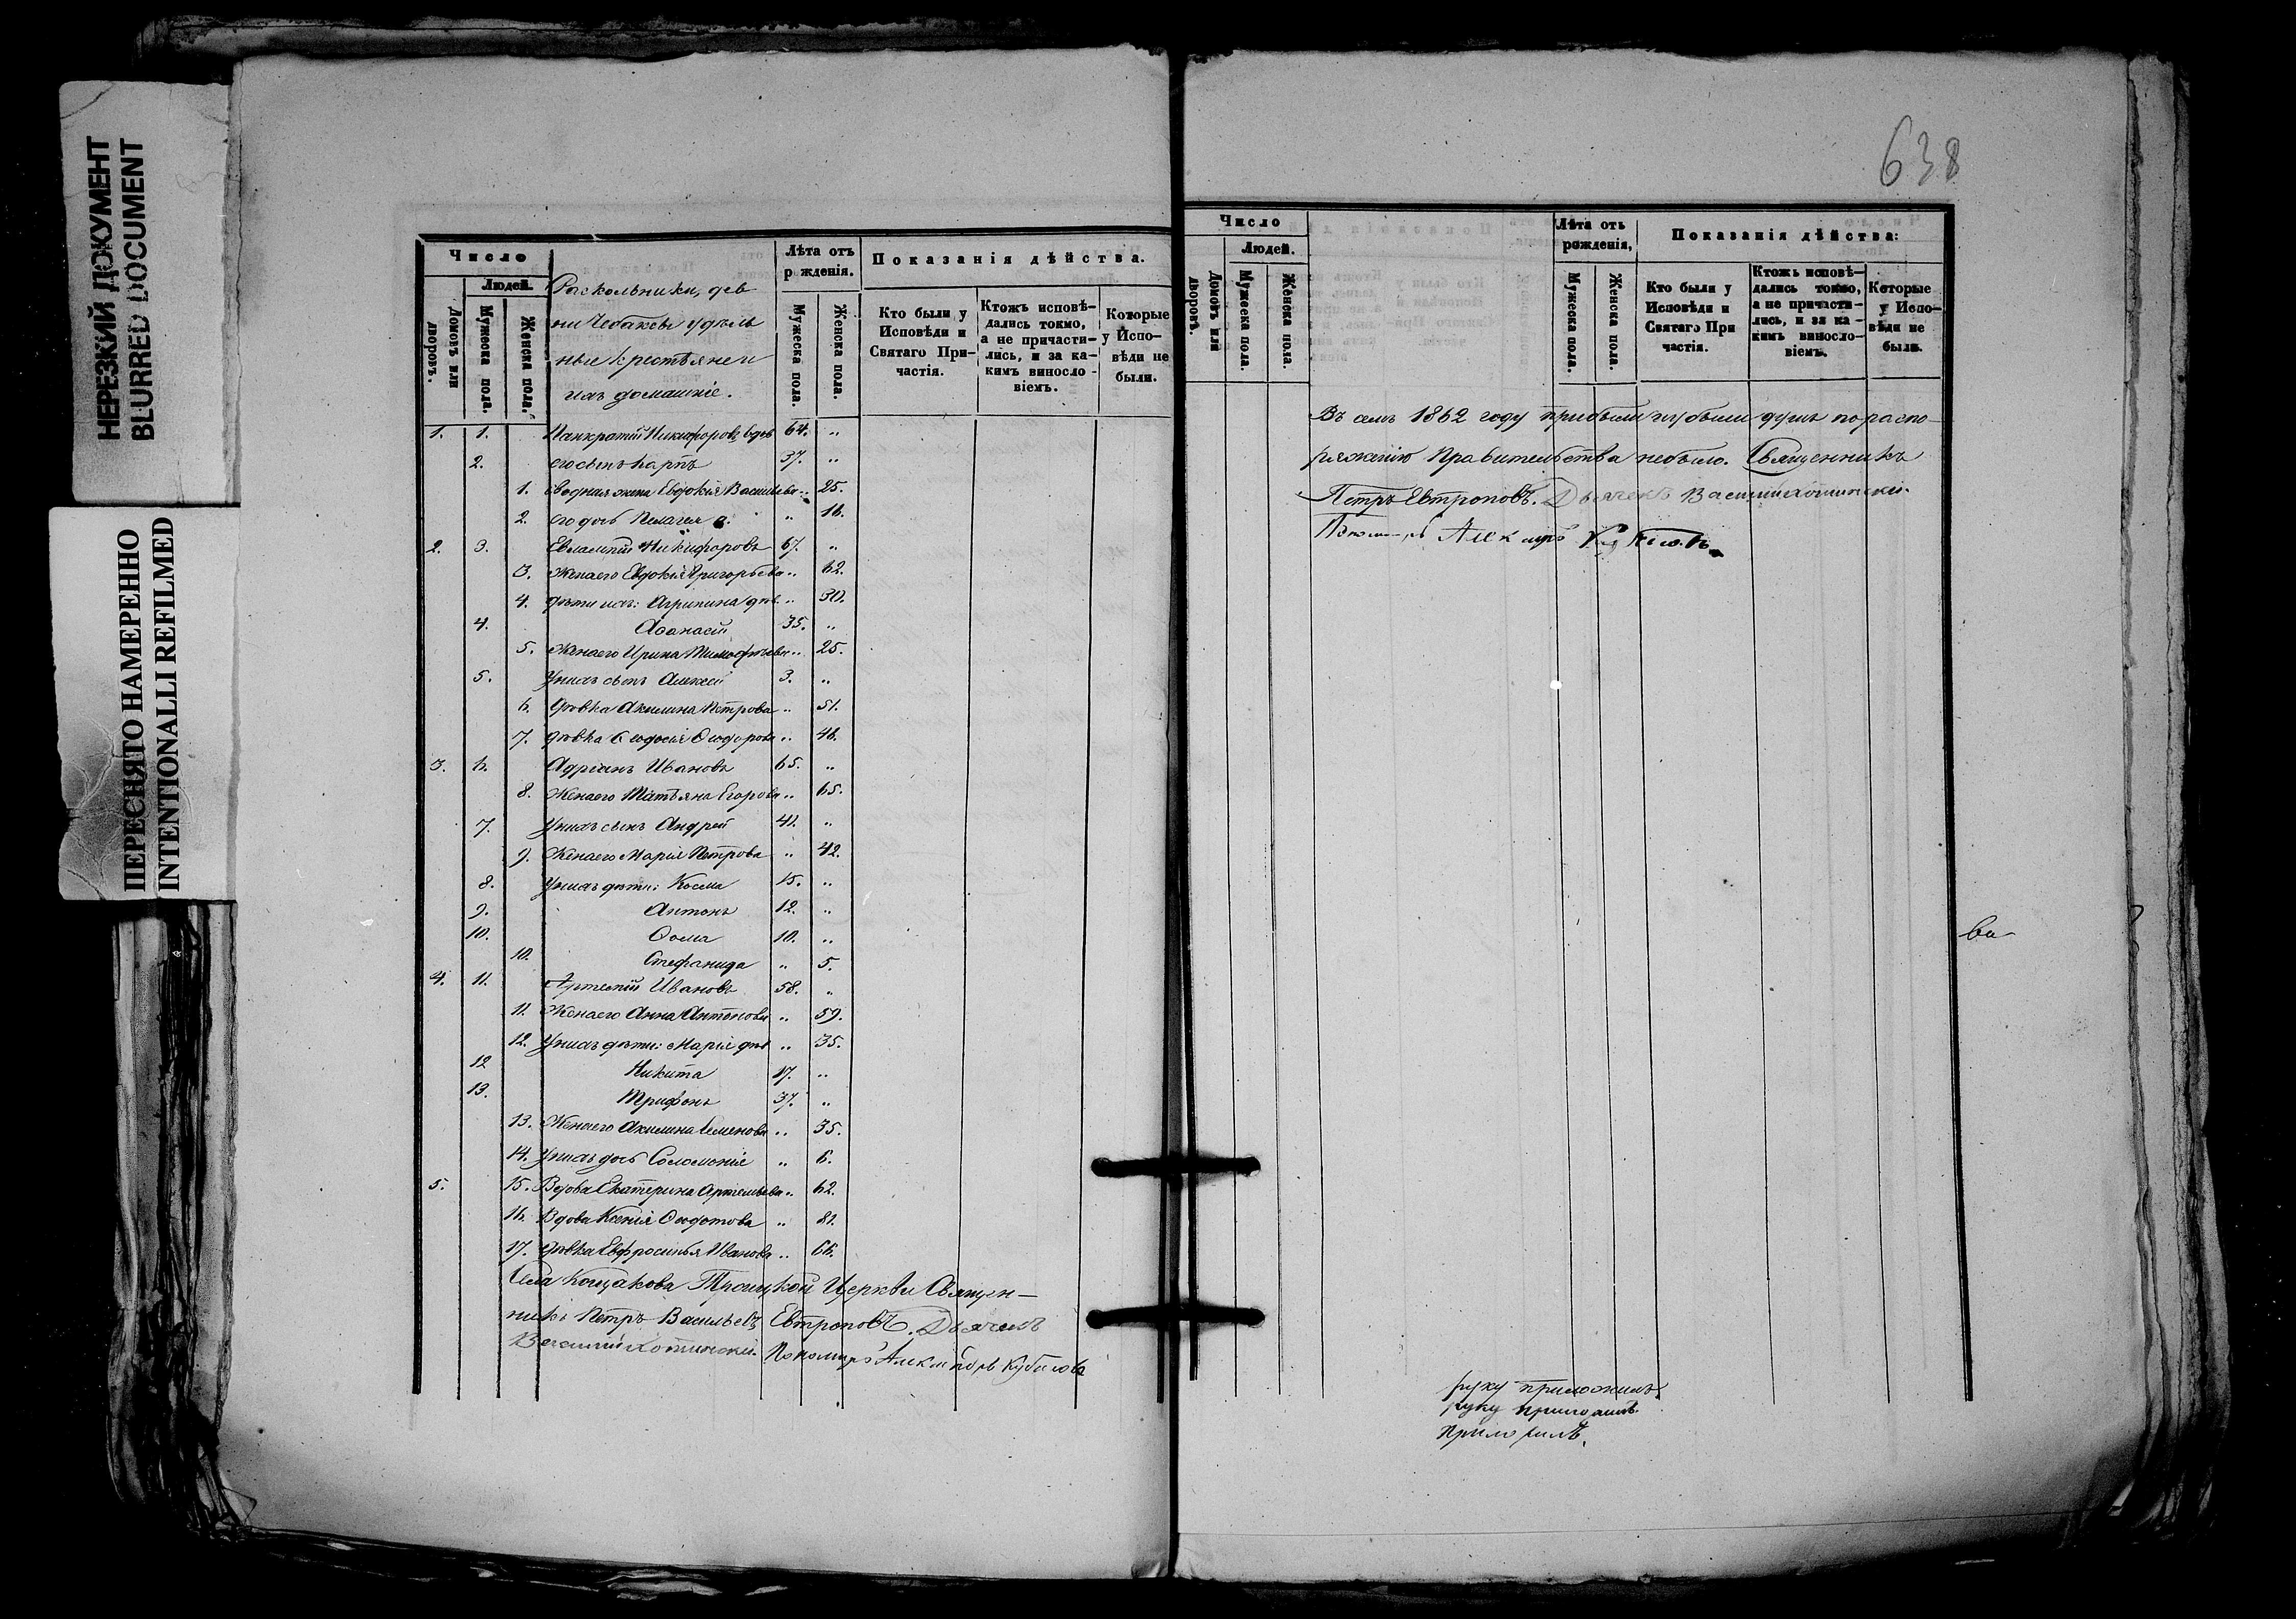 НЕРЕЗКИЙ ДОКУМЕНТ
BLURRED DOCUMENT
ПЕРЕСНЯТО НАМЕРЕННО
INTENTIONALLI REFILMED
Число
Людей.
Домовъ или дворовъ.
Мужеска пола.
Женска пола.
Раскольники, дев
ни Чебаксы удѣль
ные крестьяне и
ихъ домашніе.
Лѣта отъ рожденія.
Мужеска пола.
Женска пола.
Показанія дѣйства.
Кто были у Исповѣди и Святаго Причастія.
Ктожъ исповѣ-
дались токмо,
а не причасти-
лись, и за ка-
кимъ винosло-
віемъ.
Которые
у Испо-
вѣди не
были.
1. 1. Панкратій Никифоровъ вдов 64. „
2. его сынъ Карпъ 37. „
1. сводная жена Евдокія Васильева „ 25.
2. его дочь Пелагея „ 18.
2. 3. Евлампій Никифоровъ 67. „
3. Жена его Евдокія Григорьева „ 62.
4. дѣти ихъ: Агрипина дѣв. „ 30.
4. Аѳанасій 35. „
5. Жена его Ирина Тимофѣева „ 25.
5. У нихъ сынъ Алексѣй 3. „
6. Дѣвка Акилина Петрова „ 51.
7. дѣвка Ѳеодосія Ѳеодорова „ 46.
3. 6. Адріанъ Ивановъ 65. „
8. Жена его Татьяна Егорова „ 65.
7. У нихъ сынъ Андрей 41. „
9. Жена его Марія Петрова „ 42.
8. У нихъ дѣти: Косма 15. „
9. Антонъ 12. „
10. Ѳома 10. „
10. Стефанида „ 5.
4. 11. Артемій Ивановъ 58. „
11. Жена его Анна Антонова „ 59.
12. У нихъ дѣти: Марія дѣв „ 35.
12 Никита 17. „
13. Трифонъ 37. „
13. Жена его Акилина Семенова „ 35.
14. У нихъ дочь Соломонія „ 6.
5. 15. Вдова Екатерина Артемьева „ 62.
16. Вдова Ксенія Ѳеодотова „ 81.
17. дѣвка Евфросинья Иванова „ 66.
Села Кощакова Троицкой Церкви Священ-
никъ Петръ Васильевъ Евтроповъ. Дьячекъ
Василій Хотинскій. Пономарь Александръ
638
Число
Людей.
Домовъ или дворовъ.
Мужеска пола.
Женска пола.
Лѣта отъ рожденія,
Мужеска пола.
Женска пола.
Показанія дѣйства:
Кто были у
Исповѣди и
Святаго При
частія.
Ктожъ исповѣ-
дались токмо,
а не причасти-
лись, и за ка-
кимъ виносло-
віемъ.
Которые
у Испо-
вѣди не
были.
Въ семъ 1862 году прибыли и убыли душъ по распо-
ряженію Правительства небыло. Священникъ
Петръ Евтроповъ. Дьячекъ Василій Хотинскій.
ва
руку приложилъ.
руку приложилъ.
приложилъ.